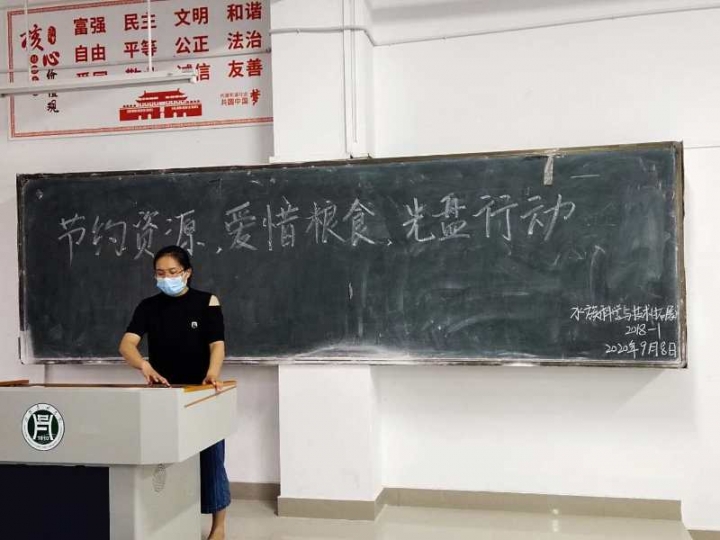 核心价值观
富强 民主 文明 和谐
自由 平等 公正 法治
诚信 友善
共圆中国梦
节约资源,爱惜粮食,光盘行动
水族科学与技术
2018-1
2020年9月8日